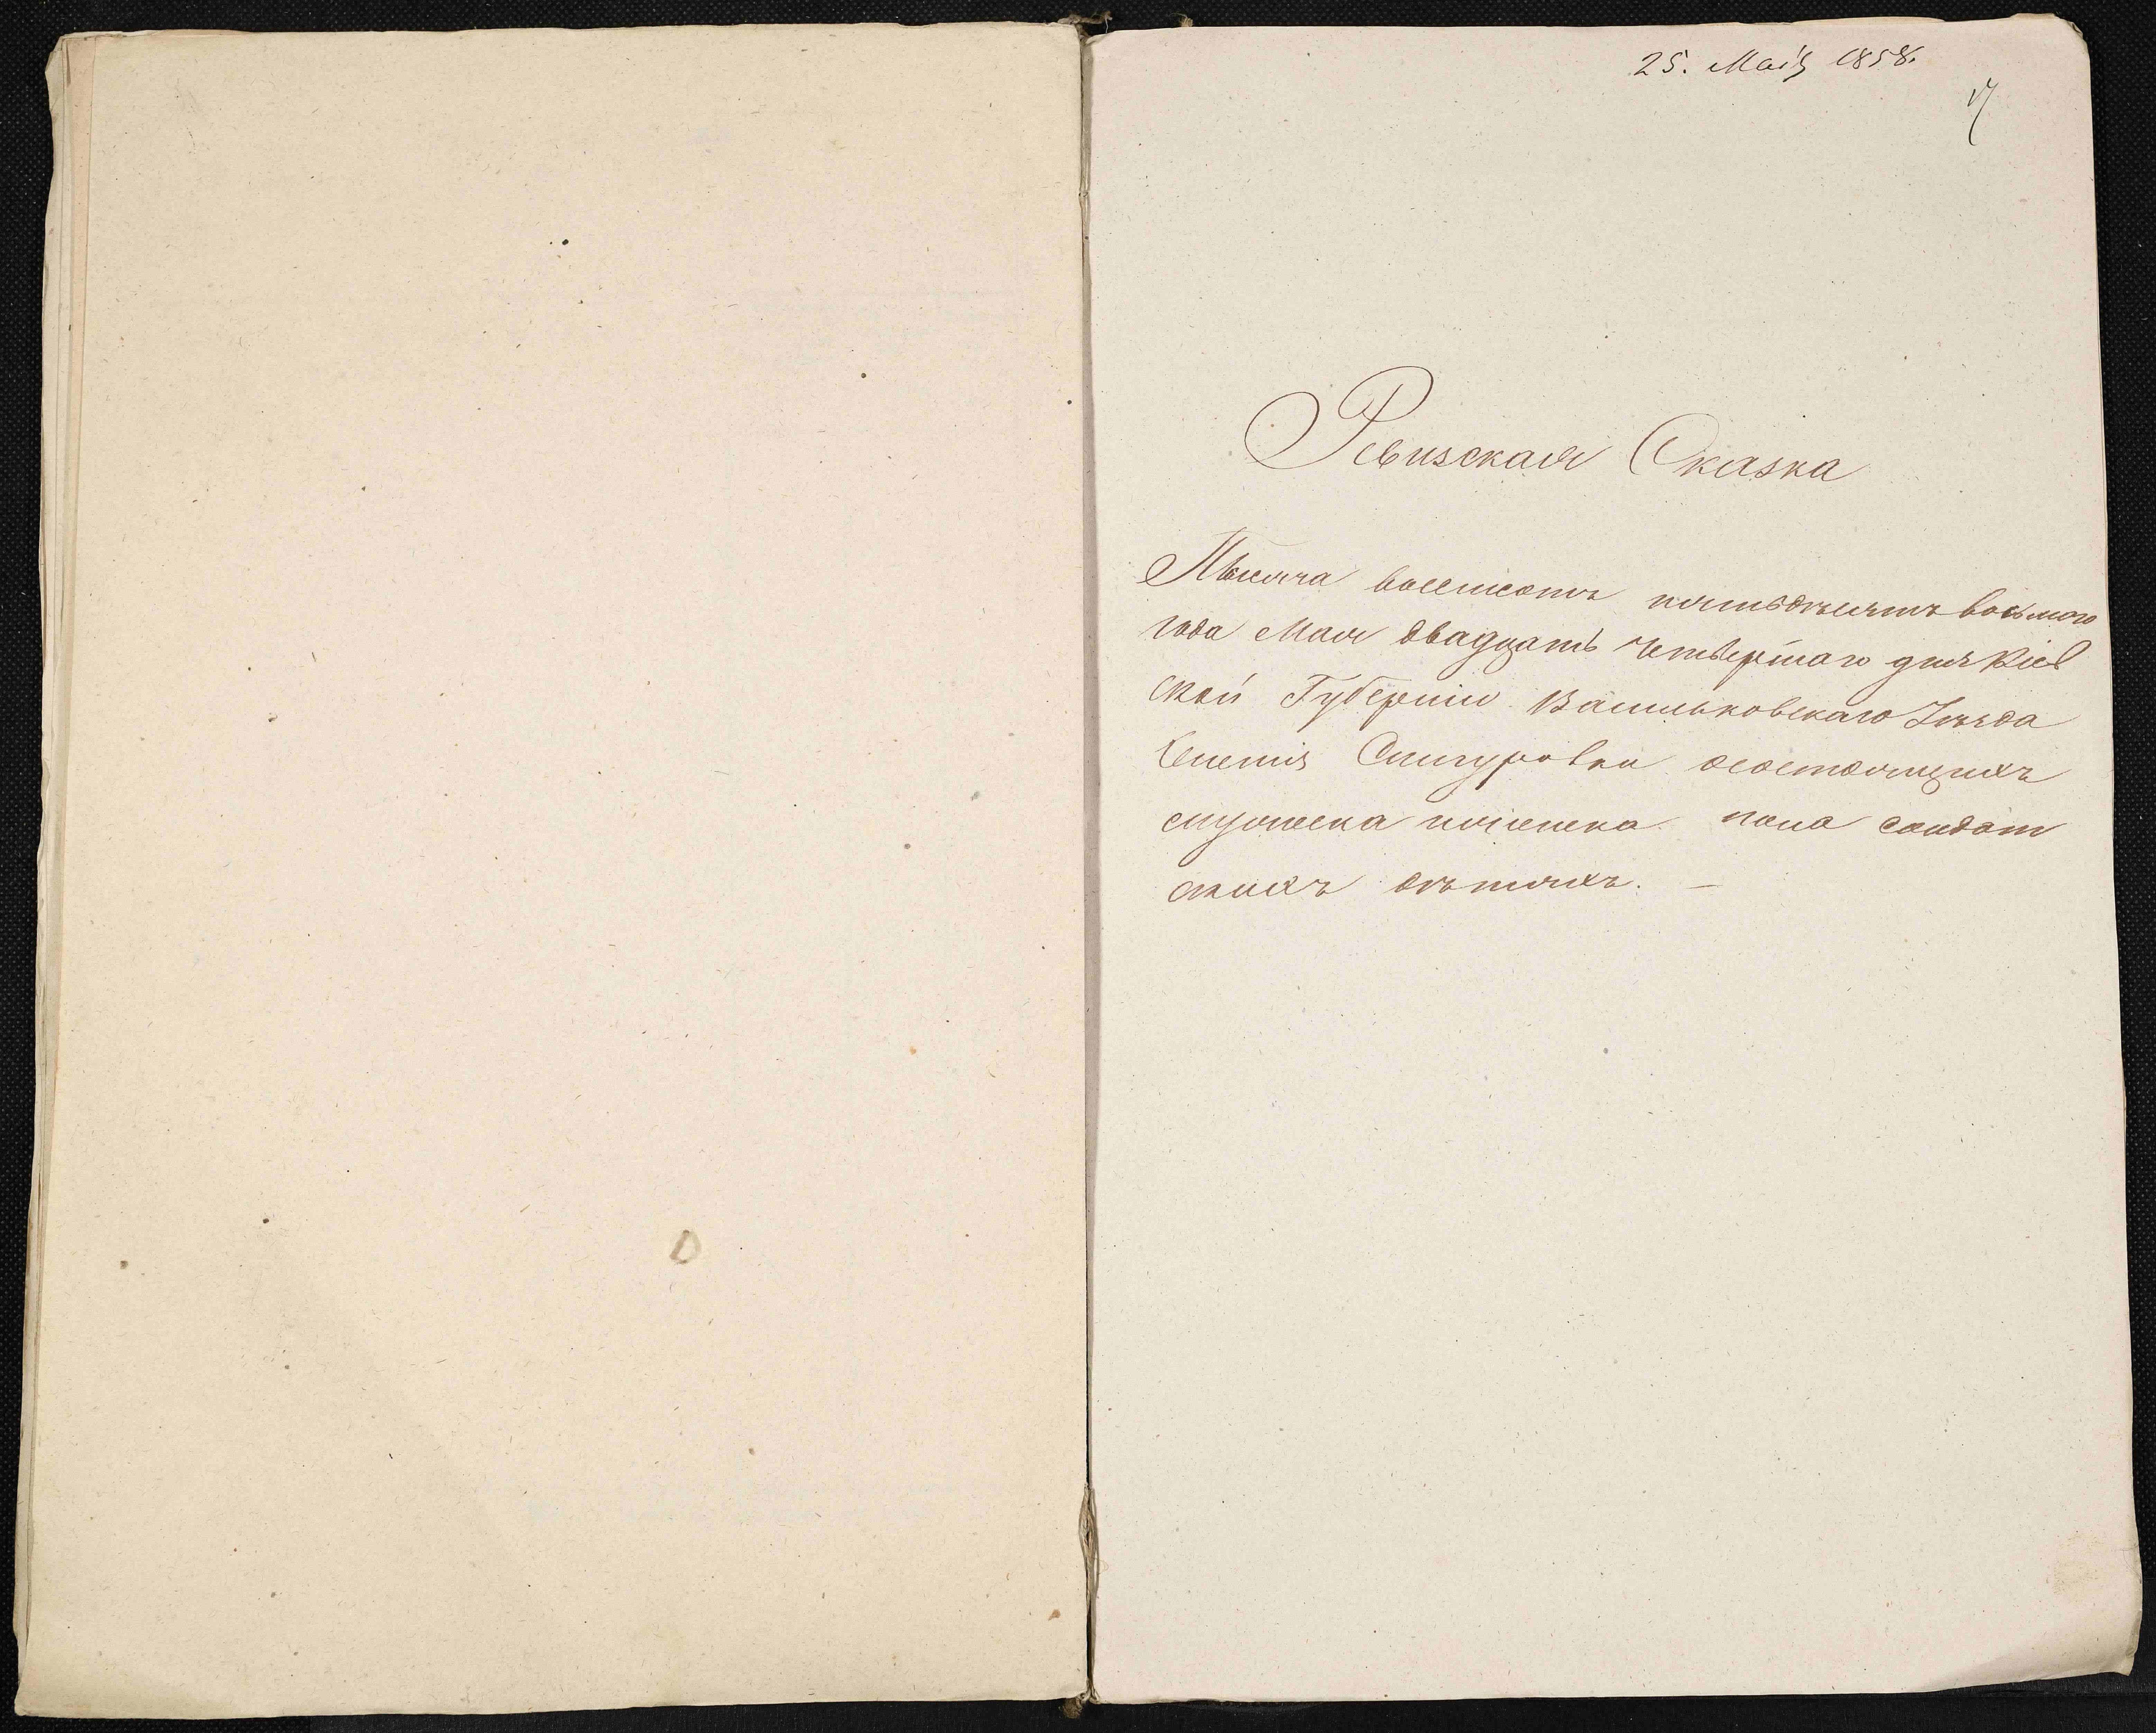 25. Маія 1858.
Ревизская Сказка
Тысяча восемсотъ пятьдѣсятъ восьмого
года Мая двадцать четвертаго дня Кіев
ской Губерніи Васильковскаго Уѣзда
Снигуровки осостоящихъ
мужеска женска пола солдат
скихъ дѣтяхъ. —